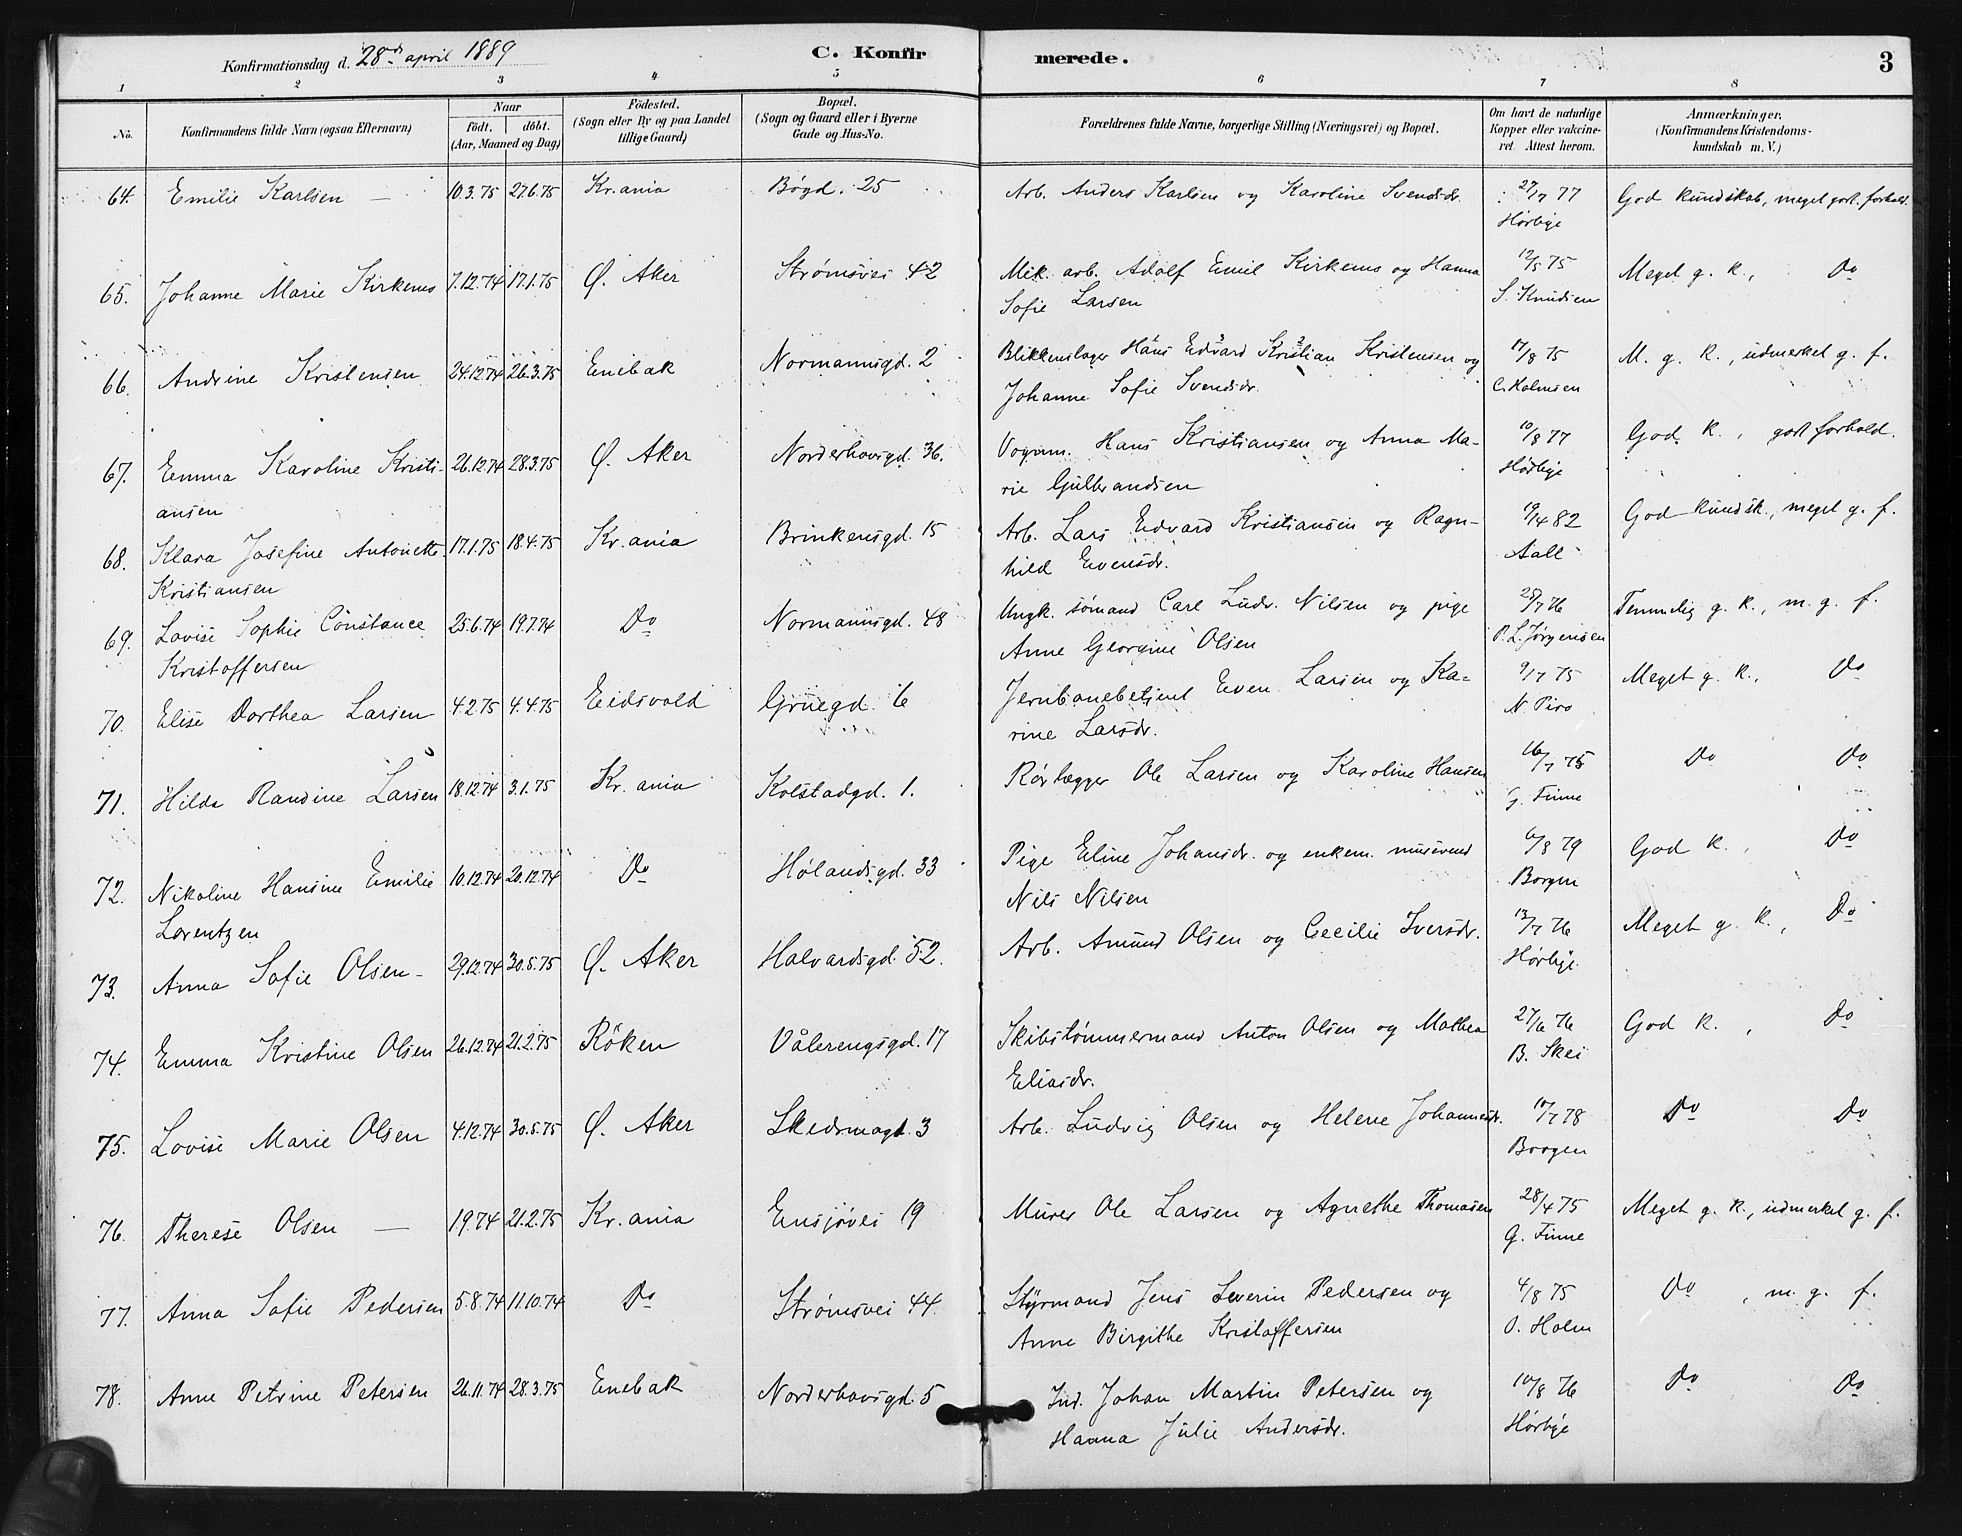 Konfirmationsdag d. 28de april 1889 C. Konfirmerede. 3
1 2 3 4 5 6 7 8
No. Konfirmandens fulde Navn (ogsaa Efternavn) Naar født. døbt. (Aar, Maaned og Dag) Fødested. (Sogn eller By og paa Landet tillige Gaard) Bopæl. (Sogn og Gaard eller i Byerne Gade og Hus-No. Forældrenes fulde Navne, borgerlige Stilling (Næringsvei) og Bopæl. Om havt de naturlige Kopper eller vakcineret. Attest herom. Anmærkninger. (Konfirmandens Kristendomskundskab m. V.)
64. Emilie Karlsen — 10.3.75 27.6.75 Kr.ania Bøgd. 25 Arb. Anders Karlsen og Karoline Svendsdr. 27/7 77 God kundskab, meget godt forhold.
Hørbye
65. Johanne Marie Kirkenes 7.12.74 17.1.75 Ø. Aker Strømsvei 42 Mek. arb. Adolf Emil Kirkenes og Hanna 12/5 75 Meget g. k., Do
Sofie Larsen S. Knudsen
66. Andrine Kristensen 24.12.74 26.3.75 Enebak Normannsgd. 2 Blikkenslager Hans Edvard Kristian Kristensen og 17/8 75 M. g. k., udmerket g. f.
Johanne Sofie Svendsdr. C. Holmsen
67. Emma Karoline Kristi- 26.12.74 28.3.75 Ø. Aker Norderhovsgd. 36. Vognm. Hans Kristiansen og Anna Ma- 10/8 77 God k., godt forhold.
ansen rie Gulbrandsen Hørbye
68. Klara Josefine Antonette 17.1.75 18.4.75 Kr.ania Brinkensgd. 15 Arb. Lars Edvard Kristiansen og Ragn- 19/4 82 God kundsk., meget g. f.
Kristiansen hild Evensdr. Aall
69. Lovise Sophie Constance 25.6.74 19.7.74 Do Normannsgd. 48 Ungk. sømand Carl Ludv. Nilsen og pige 28/7 76 Temmelig g. k., m. g. f.
Kristoffersen Anne Georgine Olsen P. L. Jørgensen
70. Elise Dorthea Larsen 4.2.75 4.4.75 Eidsvold Gruegd. 6 Jernbanebetjent Even Larsen og Ka- 9/7 75 Meget g. k., Do
rine Larsdr. N. Piro
71. Hilda Randine Larsen 18.12.74 3.1.75 Kr.ania Kolstadgd. 1. Rørlægger Ole Larsen og Karoline Hansen 16/7 75 Do Do
G. Finne
72. Nikoline Hansine Emilie 10.12.74 20.12.74 Do Hølandsgd. 33 Pige Eline Johansdr. og enkem. mursvend 6/8 79 God k., Do
Lorentzen Nils Nilsen Borgen
73. Anna Sofie Olsen - 29.12.74 30.5.75 Ø. Aker Halvardsgd. 52. Arb. Amund Olsen og Cecilie Iversdr. 13/7 76 Meget g. k., Do
Hørbye
74. Emma Kristine Olsen 26.12.74 21.2.75 Röken Vålerengsgd. 17 Skibstømmermand Anton Olsen og Mathea 27/6 76 God k., Do
Eliasdr. B. Skei
75. Lovise Marie Olsen 4.12.74 30.5.75 Ø. Aker Skedsmogd. 3 Arb. Ludvig Olsen og Helene Johannesdr. 10/7 78 Do Do
Borgen
76. Therese Olsen — 1974 21.2.75 Kr.ania Ensjøvei 19 Murer Ole Larsen og Agnethe Thomasen 28/4 75 Meget g. k., udmerket g. f.
G. Finne
77. Anna Sofie Pedersen 5.8.74 11.10.74 Do Strømsvei 44. Styrmand Jens Severin Pedersen og 4/8 75 Do, m. g. f.
Anne Birgithe Kristoffersen O. Holm
78. Anne Petrine Petersen 26.11.74 28.3.75 Enebak Norderhovsgd. 5 Ind. Johan Martin Petersen og 10/8 76 Do Do
Hanna Julie Andersdr. Hørbye